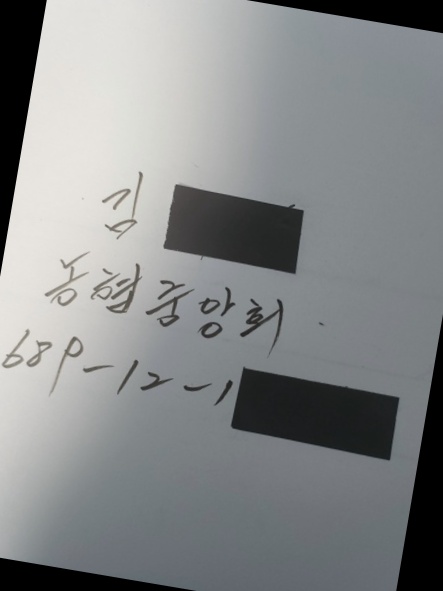 김
농협중앙회
689-12-1